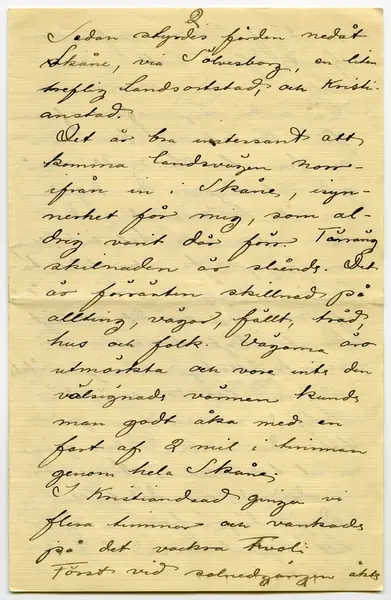 2.
Sedan styrdes färden nedåt
Skåne, via Sölvesborg, en liten
treflig landsortstad, och Kristi-
anstad.
Det är bra intressant att
komma landsvägen norr-
ifrån in i Skåne, isyn-
nerhet för mig, som al-
drig varit där förr. Terräng
skilnaden är slånde. Det
är förresten skillnad på
allting, vägar, fällt, träd,
hus och folk. Vägarna äro
utmärkta och vore inte den
välsignade värmen kunde
man godt åka med en
fart af 2 mil i timman
genom hela Skåne.
I Kristianstad gingo vi
flera timmar och vankade
på det vackra Tivoli.
Först vid solnedgången åkte